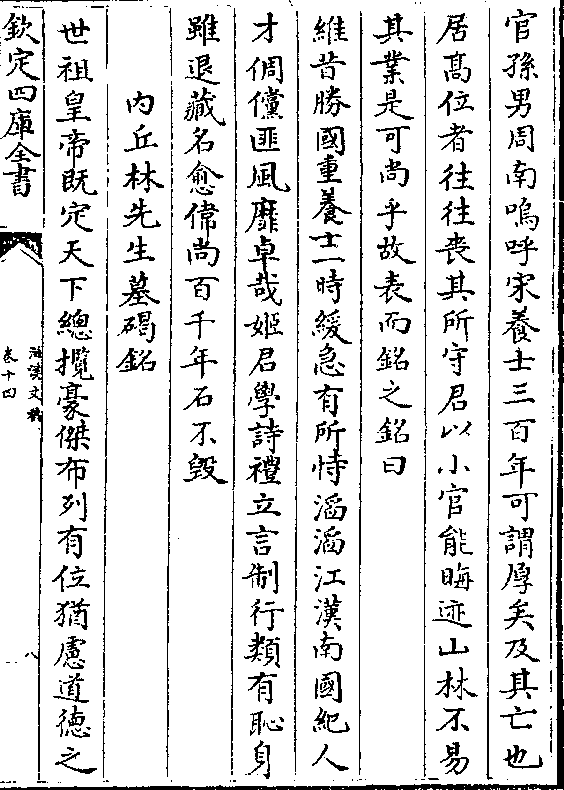 官孫男周南嗚呼宋養士三百年可謂厚矣及其亡也
居髙位者往往喪其所守君以小官能晦迹山林不易
其業是可尚乎故表而銘之銘曰
維昔勝國重養士一時緩急有所恃滔滔江漢南國紀人
才倜儻匪風靡卓哉姬君學詩禮立言制行類有恥身
雖退藏名愈偉尚百千年石不毀
内丘林先生墓碣銘
世祖皇帝既定天下總攬豪傑布列有位猶慮道德之
欽定四庫全書
滋溪文稿
卷十四
八